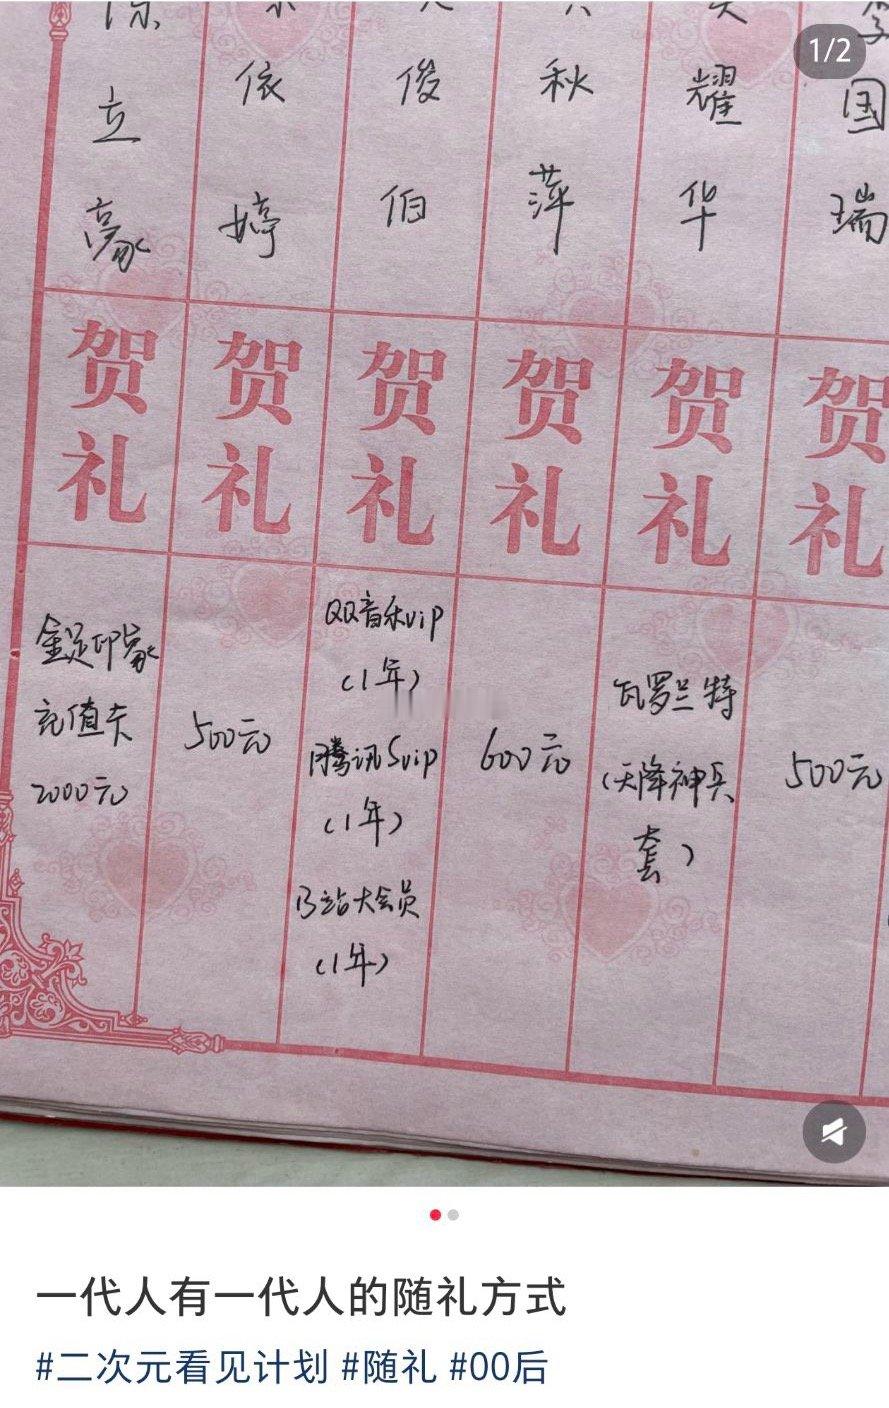 1/2
立豪
依婷
俊伯
秋萍
耀华
国瑞
贺礼
贺礼
贺礼
贺礼
贺礼
贺礼
金足印象
充值卡
2000元
500元
QQ音乐vip
(1年)
腾讯Svip
(1年)
B站大会员
(1年)
600元
瓦罗兰特
(天降神兵
套)
500元
一代人有一代人的随礼方式
#二次元看见计划 #随礼 #00后